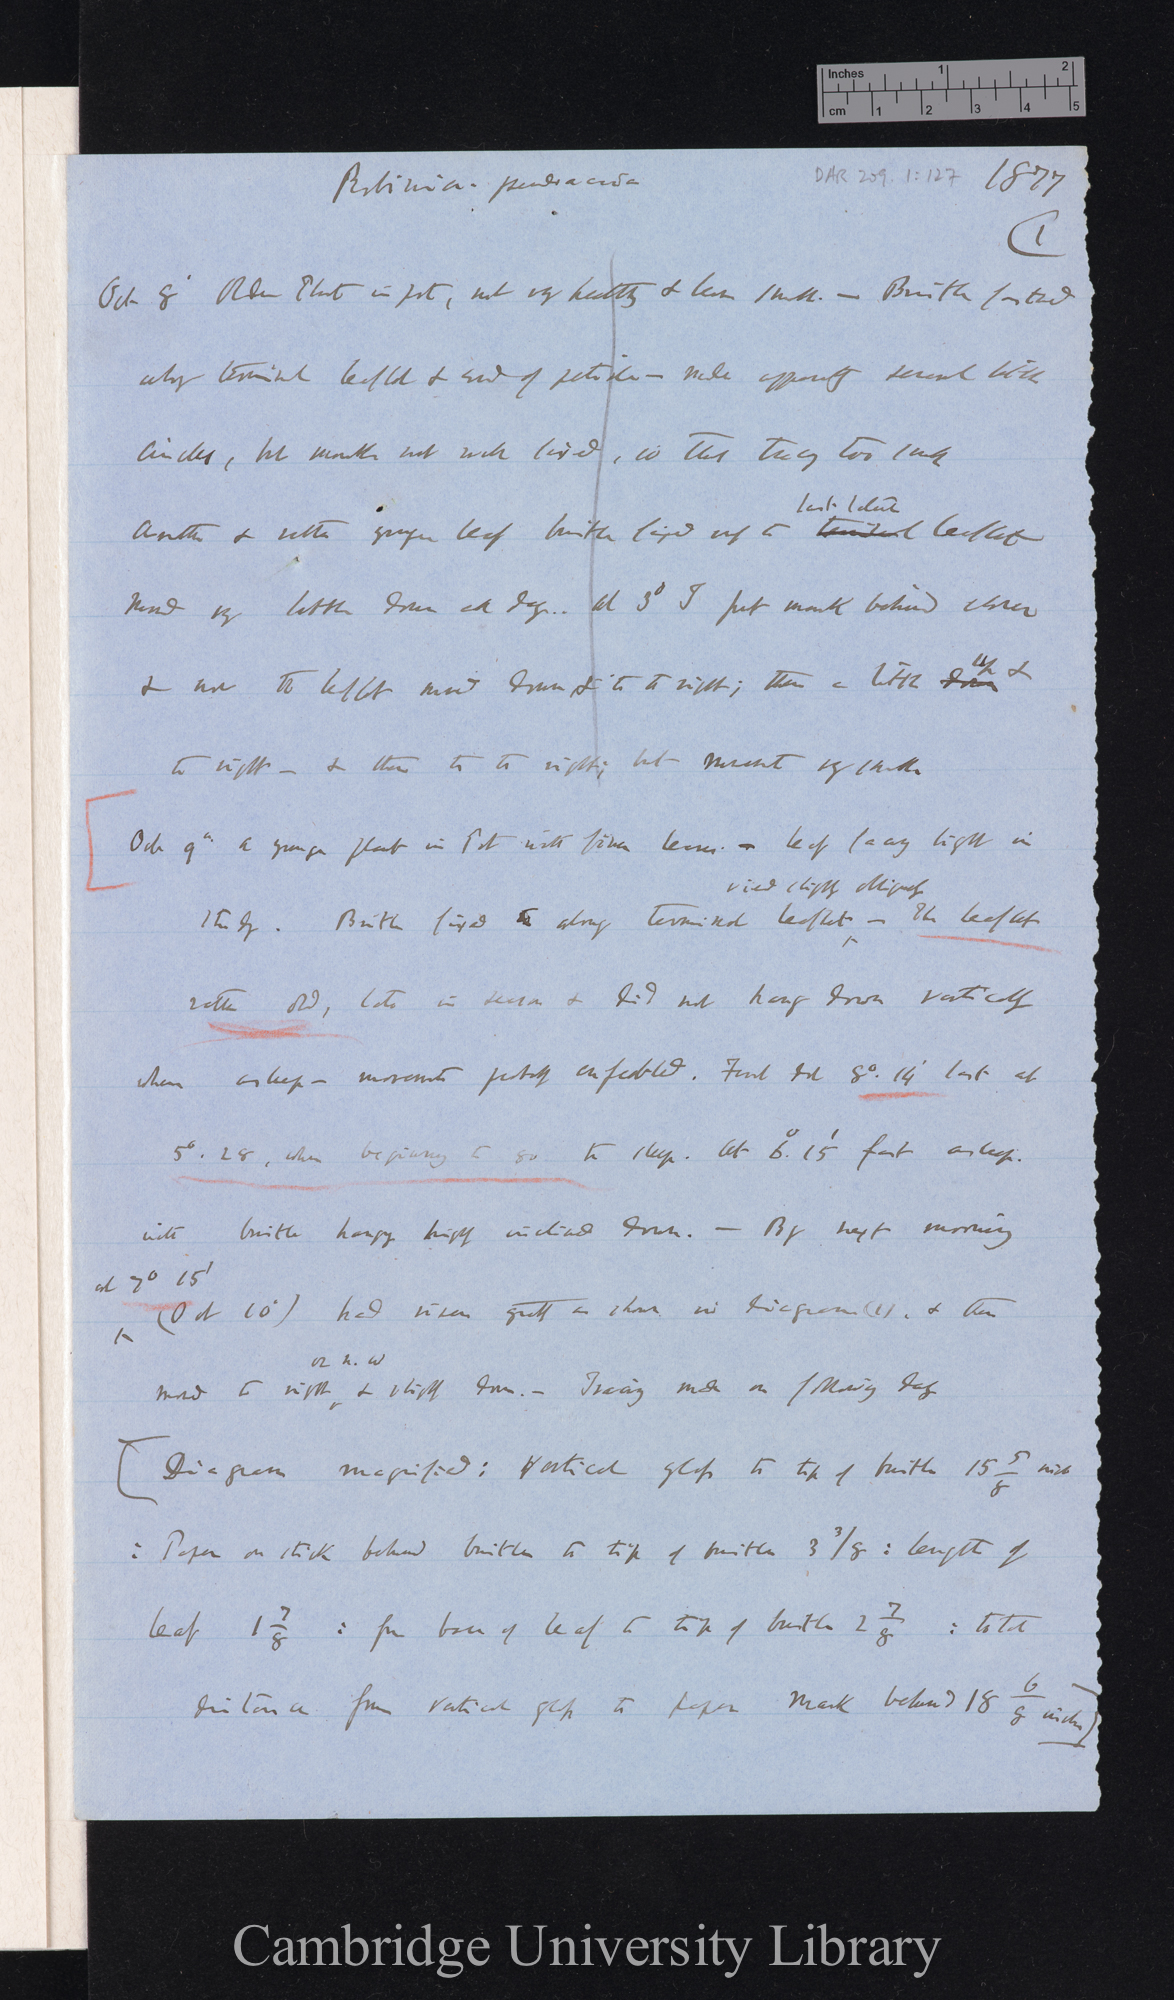 Inches 1 2
cm 1 2 3 4 5
Robinia - pseudacacia DAR 209. 1:127 1877
(1
Oct 8' Older Plant in pot, not very healthy & leaves small. — Bristle fastened
along terminal leaflet & end of petiole — made apparently several little
circles, but mark not well fixed, so that tracing too small
Another & rather younger leaf bristle fixed up to last lateral terminal leaflet
moved very little down all day.. At 3° I put mark behind closer
& now the leaflet moved down & to right; then a little down up &
to right — & then to right; but movement very small
Oct 9th a younger plant in Pot with finer leaves. — leaf facing light in
Study. Bristle fixed to along terminal leaflet, viewed slightly obliquely — The leaflet
rather old, late in season & did not hang down vertically
when asleep — movements probably enfeebled. First dot 8°. 14' last at
5°. 28, when beginning to go to sleep. At 6°. 15' fast asleep.
with bristle hanging highly inclined down. — By next morning
at 7° 15'
(Oct 10') had risen greatly as shown in diagram (1), & then
or n. w
moved to right, & slightly down. — Tracing made on following day
(Diagram magnified: Vertical glass to tip of bristle 15 5/8 inch
: Paper on stick behind bristle to tip of bristle 3 3/8 : length of
leaf 1 7/8 : from base of leaf to tip of bristle 2 7/8 : total
distance from vertical glass to paper mark behind 18 6/8 inches)
Cambridge University Library